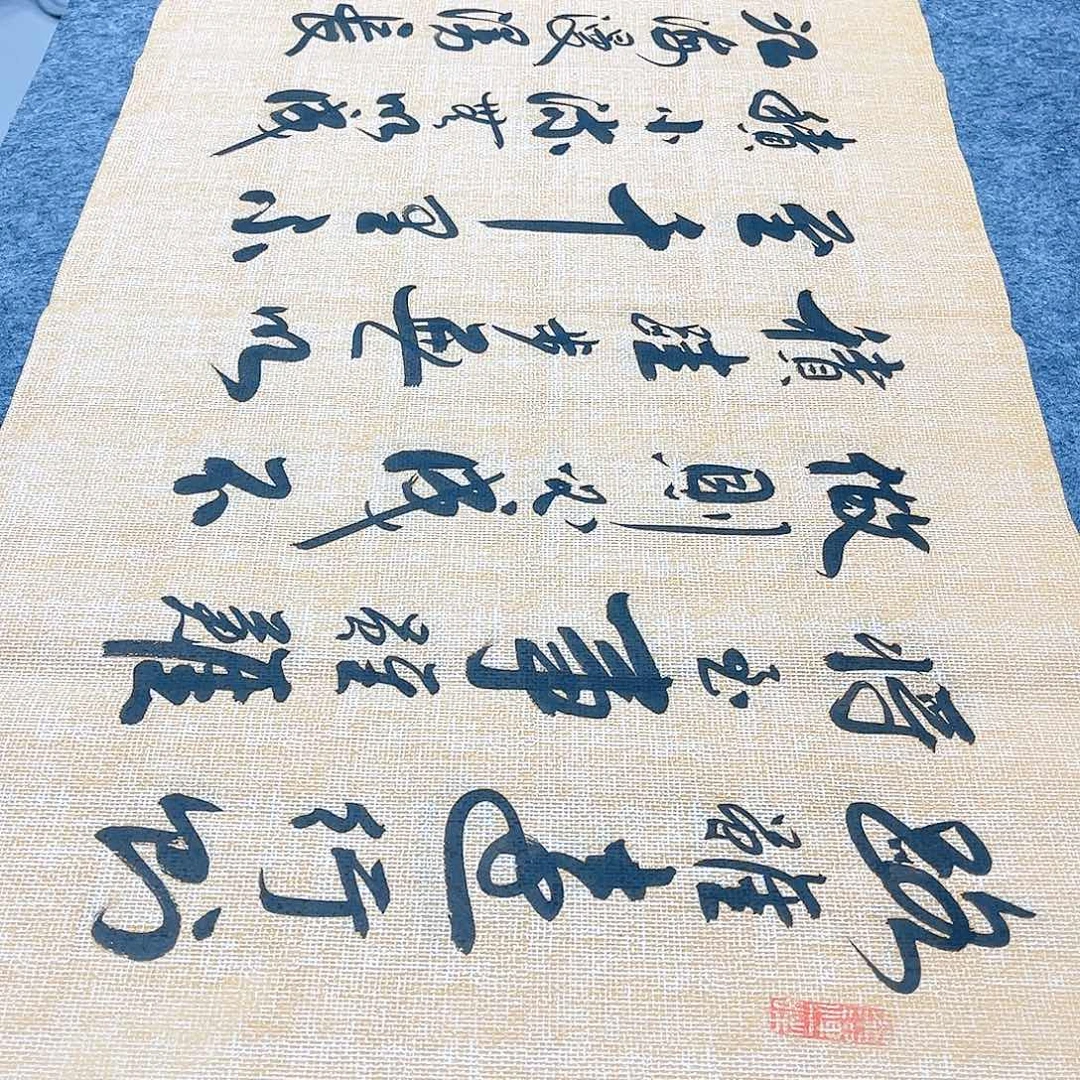 路雖遠行則
將至事雖難
做則必成不
積跬步無以
至千里不
積小流無以成
江海